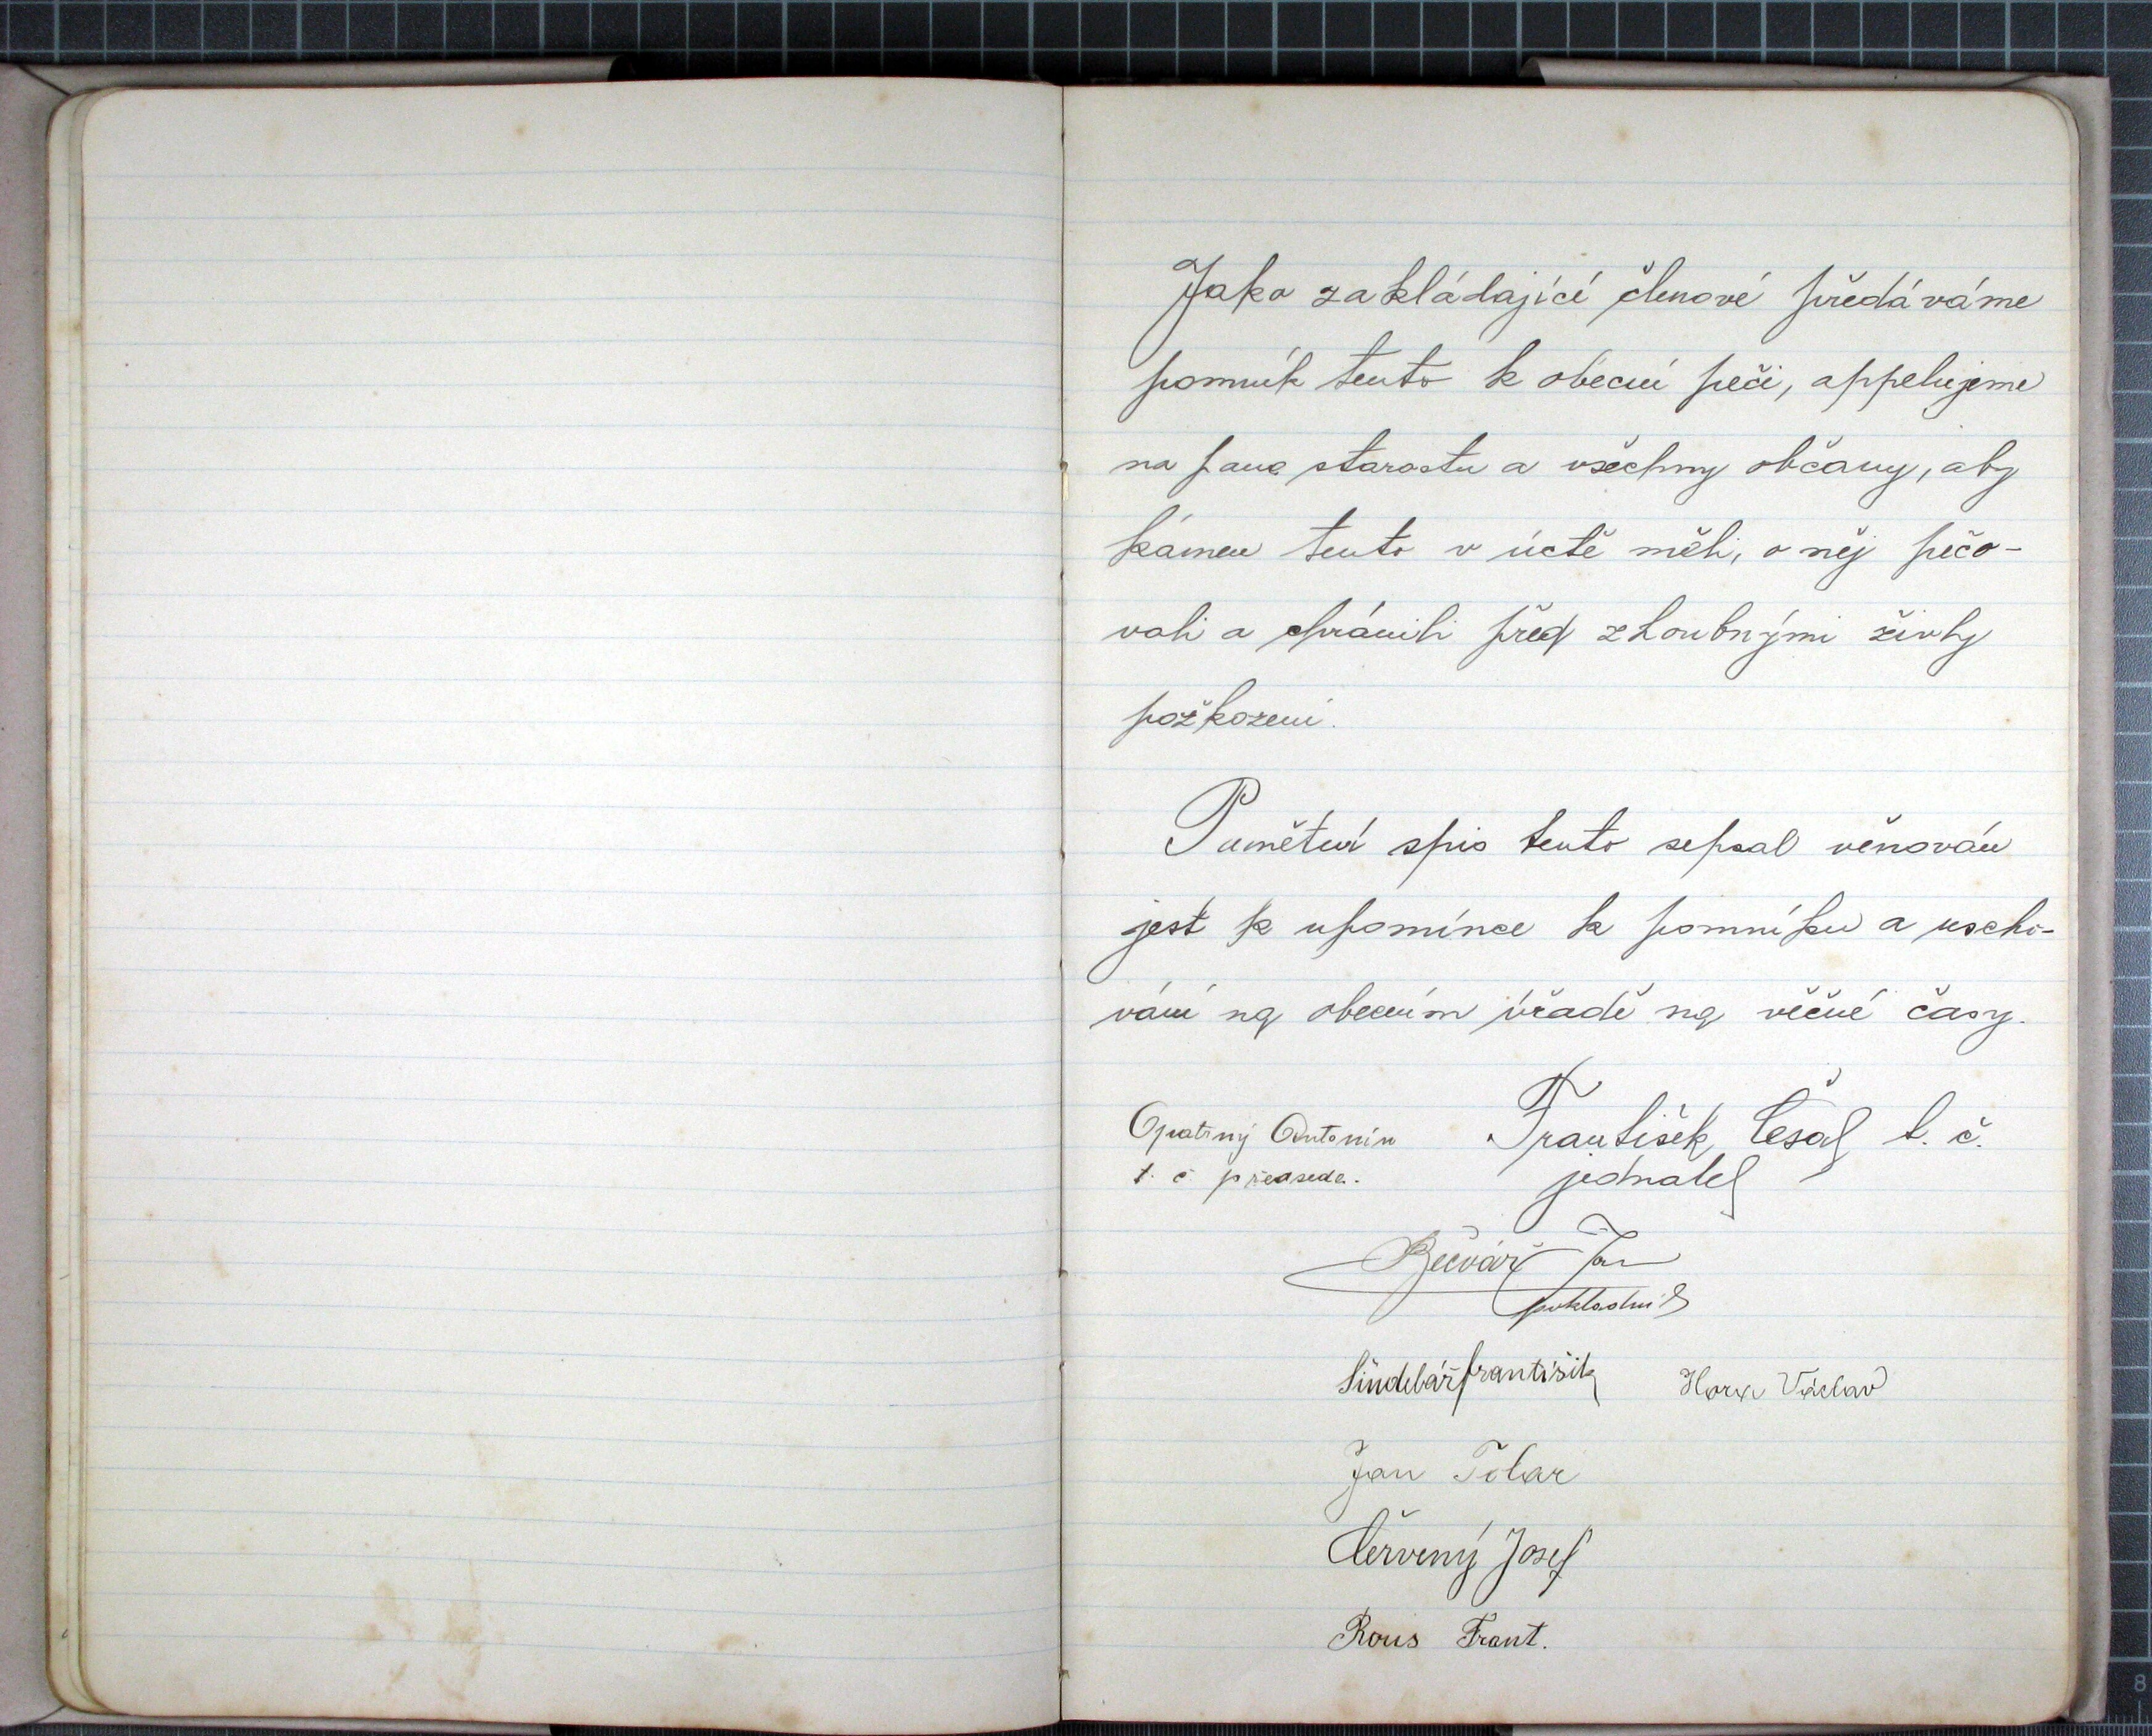 Jako zakládající členové předáváme
pomník tento k obecní péči, appelujeme
na pana starostu a všechny občany, aby
kámen tento v úctě měli, o něj pečo-
vali a chránili před zhoubnými živly
požkození.
Pamětní spis tento sepsal věnován
jest k upomínce k pomníku a uscho-
vání na obecním úřadě na věčné časy.
Opatrný Antonín František Česal t. č.
t. č předseda. jednatel
Bečvář Jan
pokladník
Šindelář František Hora Václav
Jan Tolar
Červený Josef
Rous Frant.
8